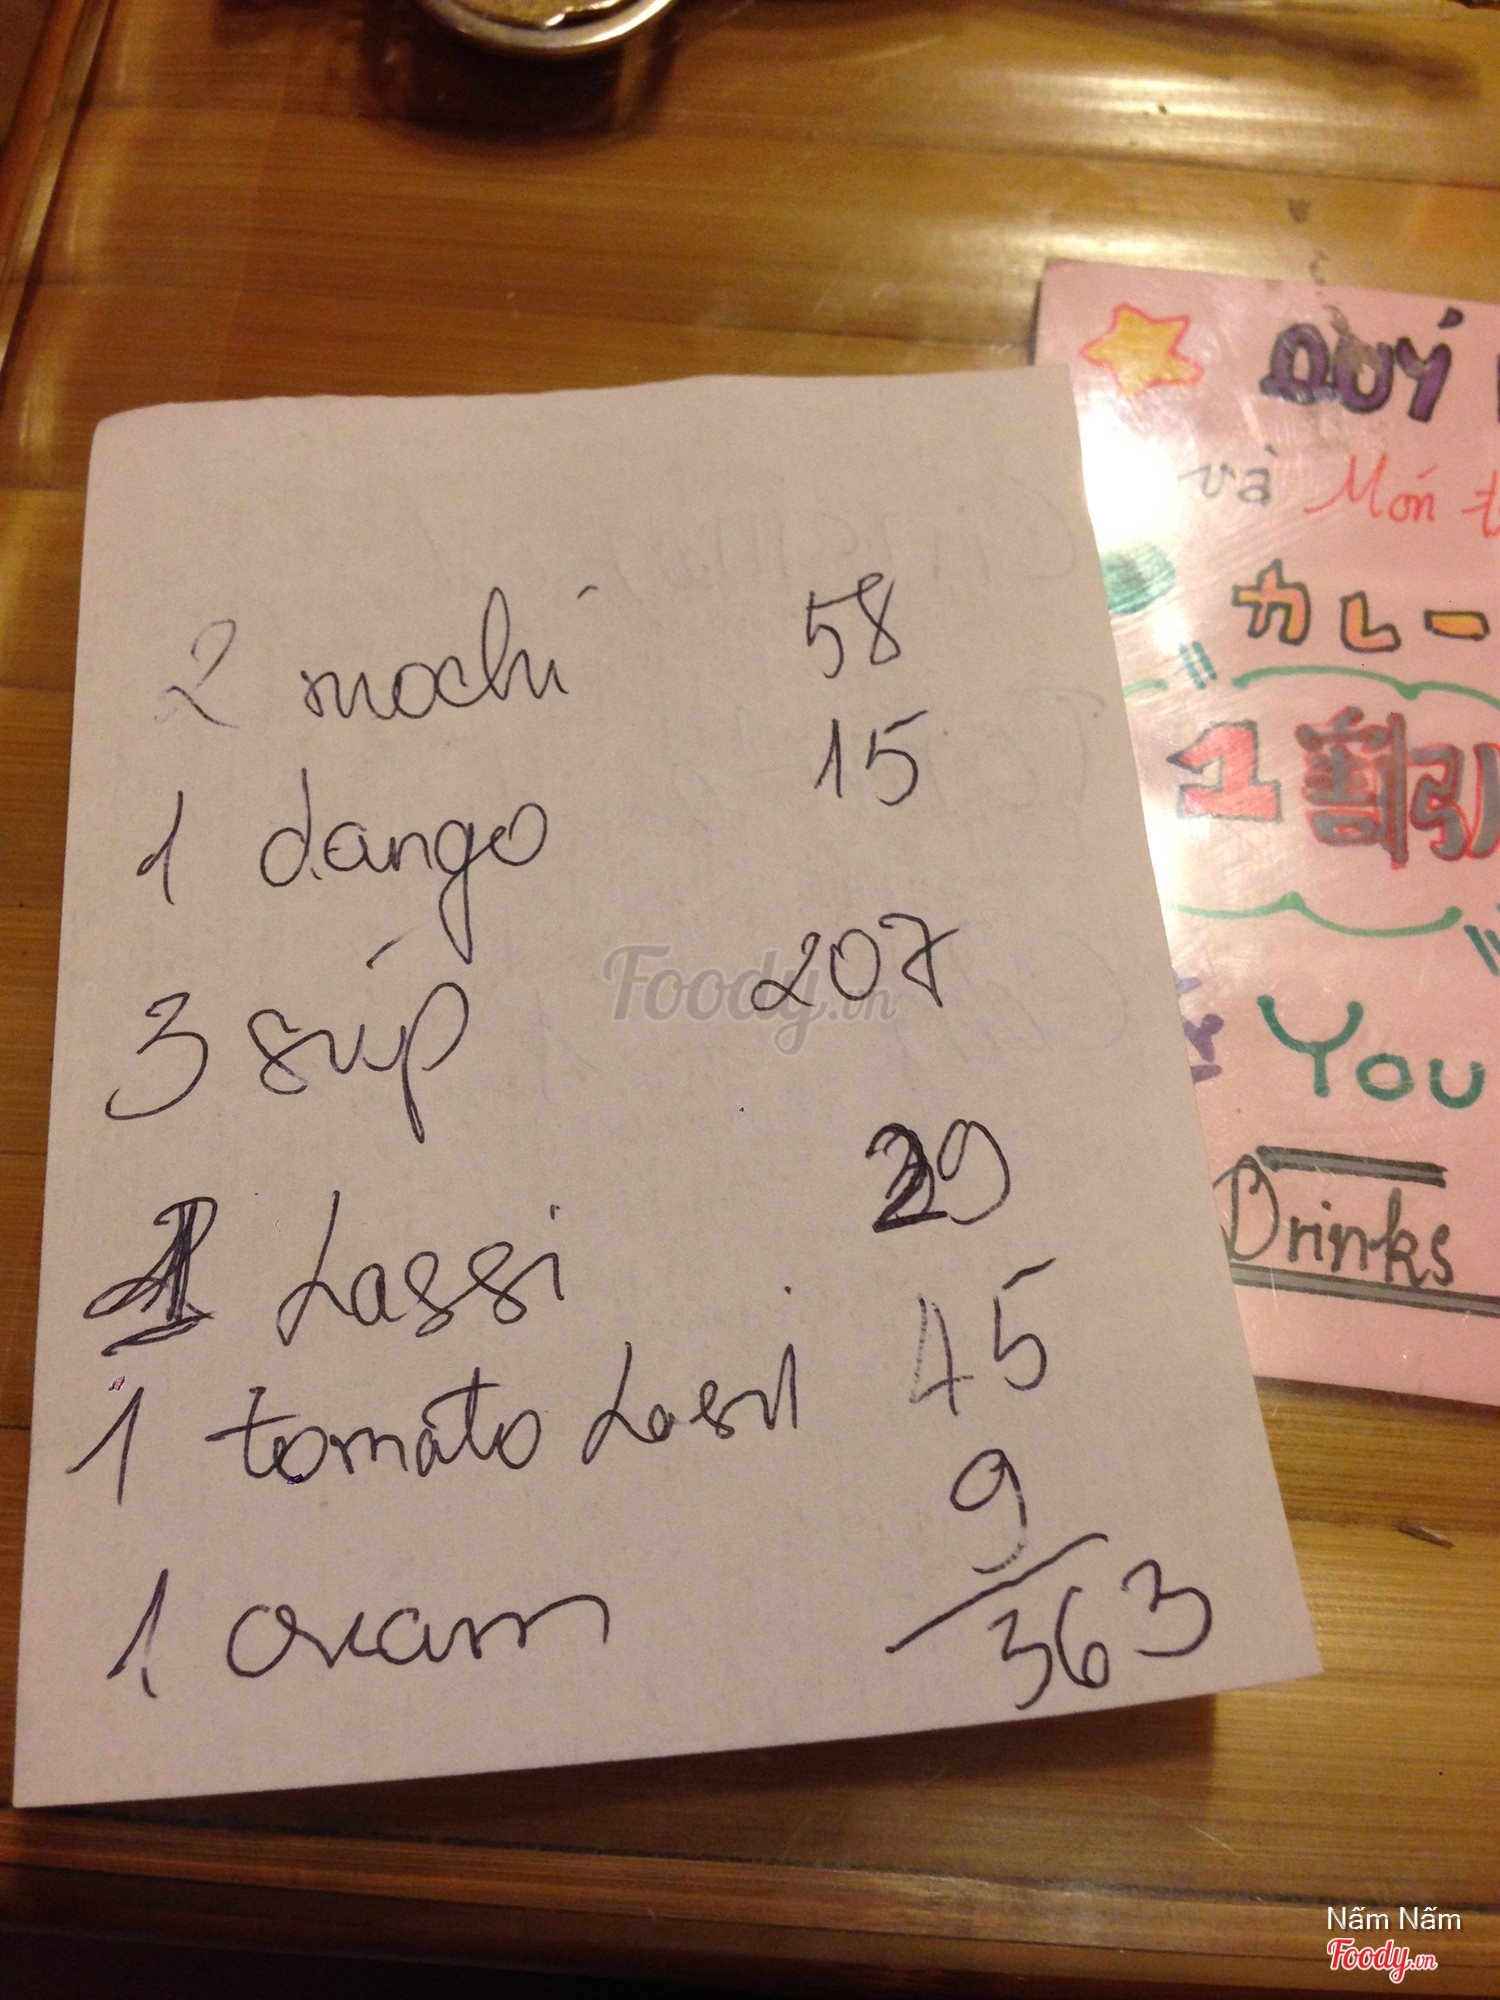 2 mochi 58
1 dango 15
3 súp 207
1 Lassi 29
1 tomato Lassi 45
1 oxam 9
363
QUÝ
và Món t
カレー
1割引
You
Drinks
Foody.vn
Nấm Nấm
Foody.vn